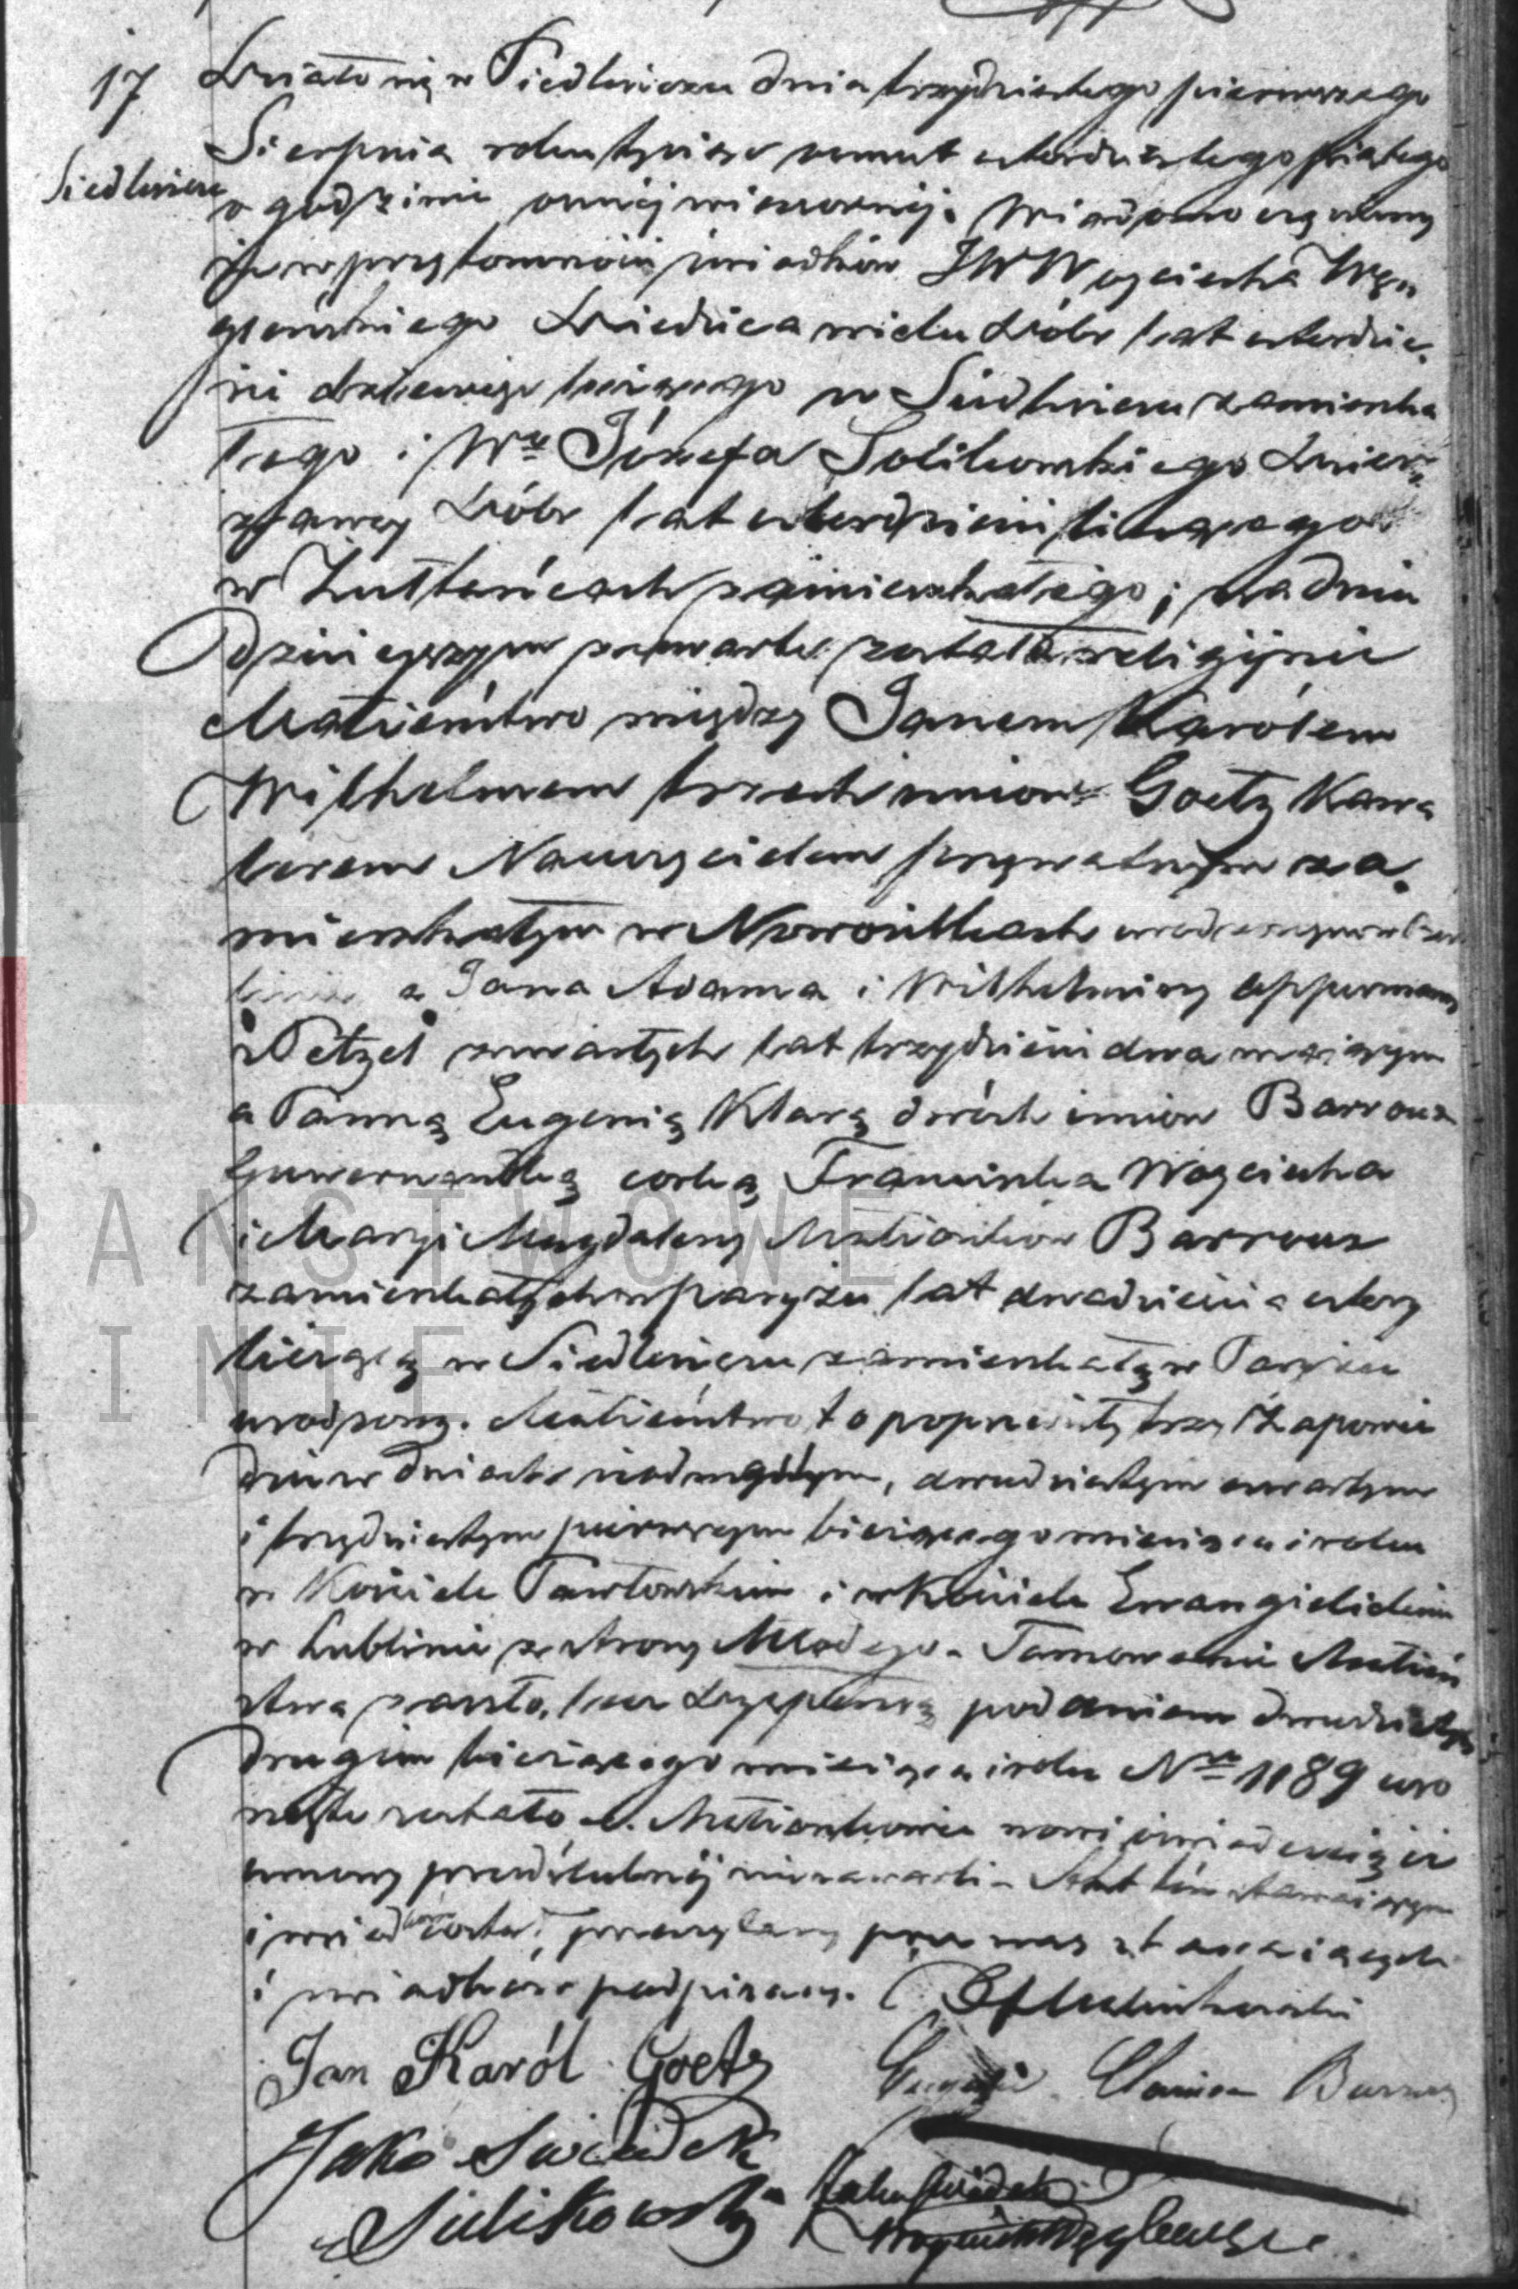 17 Działo się w Siedliszczu dnia trzydziestego pierwszego
Siedliszcze
Sierpnia roku tysiąc osmset czterdziestego piątego
o godzinie osméj wieczornéj. Wiadomo czyniemy
że w przytomności świadków JW Woyciecha Wę-
gleńskiego Dziedzica wielu Dóbr lat czterdzie-
ści dziewięć liczącego w Siedliszczu zamieszka
łego i Wgo Józefa Sulikowskiego Dzier-
żawcy Dóbr lat czterdzieści liczącego
w Żułtańcach zamieszkałego; na dniu
dzisieyszym zawarte zostało religijnie
Małżeństwo między Janem Karólem
Wilhelmem trzech imion Goetz Kawa
lerem Nauczycielem prywatnym za-
mieszkałym w Nowosiółkach urodzonym w Lu
blinie z Jana Adama i Wilhelminy
Petzel zmarłych lat trzydzieści dwa maiącym
a Panną Eugenią Klarą dwóch imion Barroux
Guwernantką corką Franciszka Woyciecha
i Maryi Magdaleny Małżonków Barroux
zamieszkałych w Paryżu lat dwadzieścia cztery
liczącą w Siedliszczu zamieszkałą w Paryżu
urodzoną. Małżeństwo to poprzedziły trzy Zapowie
dzie w dniach siedmnastym, dwudziestym czwartym
i trzydziestym pierwszym bieżącego miesiąca i roku
w Kościele Pawłowskim i w Kościele Ewangielickim
w Lublinie ze strony Młodego - Tamowanie Małżeń
stwa zaszło, lecz podaniem dwudziestym
drugim bieżącego miesiąca i roku Nro 1189 usu
nięte zostało. Małżonkowie nowi oświadczaią iż
umowy przedślubnéj niezawarli - Akt ten stawaiącym
i świadkom przeczytany przez nas stawaiących
i świadków podpisany.
Jan Karól Goetz Eugenie Clarisse Barroux
Jako Swiadek Jako Swiadek
Sulikowski Woyciech Węgleński